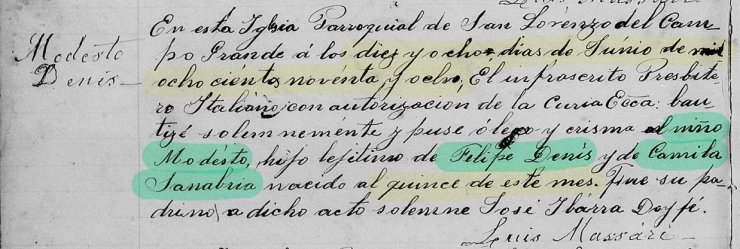 En esta Iglsia Parroquial de San Lorenzo del Cam-
Modesto
po Grande á los diez y ocho días de Júnio de mil
Denis
ocho cientos noventa y ocho, El infrascrito Presbite-
ro Italiano con autorización de la Curia Ecca: bau-
tizé solemnemente y puse óleo y crisma al niño
Modésto, hijo lejitimo de Felipe Denis y de Camila
Sanabria nacido al quince de este mes. Fue su pa-
drino a dicho acto solemne José Ibarra Doy fé.
Luis Massári